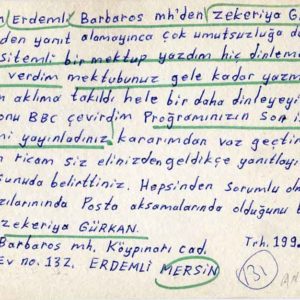 Erdemli Barbaros mh'den zekeriya G
den yanıt alamayınca çok umutsuzluğa d
sitemli bir mektup yazdım hiç dinleme
verdim mektubunuz gele kadar yazm
aklıma takıldı hele bir daha dinleyeyi
onu BBC çevirdim Programınızın Son i
mi yayınladınız kararımdan vaz geçtir
ricam siz elinizden geldikçe yanıtlayı
sunuda belirttiniz. Hepsinden Sorumlu olm
zılarınında Posta aksamalarında olduğunu b
zekeriya GÜRKAN.
Barbaros mh. Köypınarı cad. Trh. 199
Ev no. 132. ERDEMLİ MERSİN 131